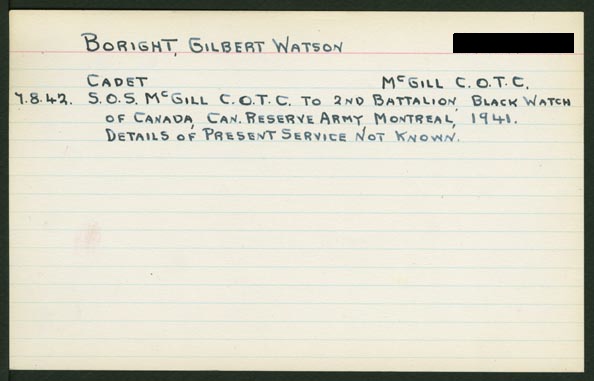 BORIGHT, GILBERT WATSON
CADET McGILL C.O.T.C.
7.8.42. S.O.S. McGILL C.O.T.C. TO 2ND BATTALION, BLACK WATCH
OF CANADA, CAN. RESERVE ARMY MONTREAL, 1941.
DETAILS OF PRESENT SERVICE NOT KNOWN.